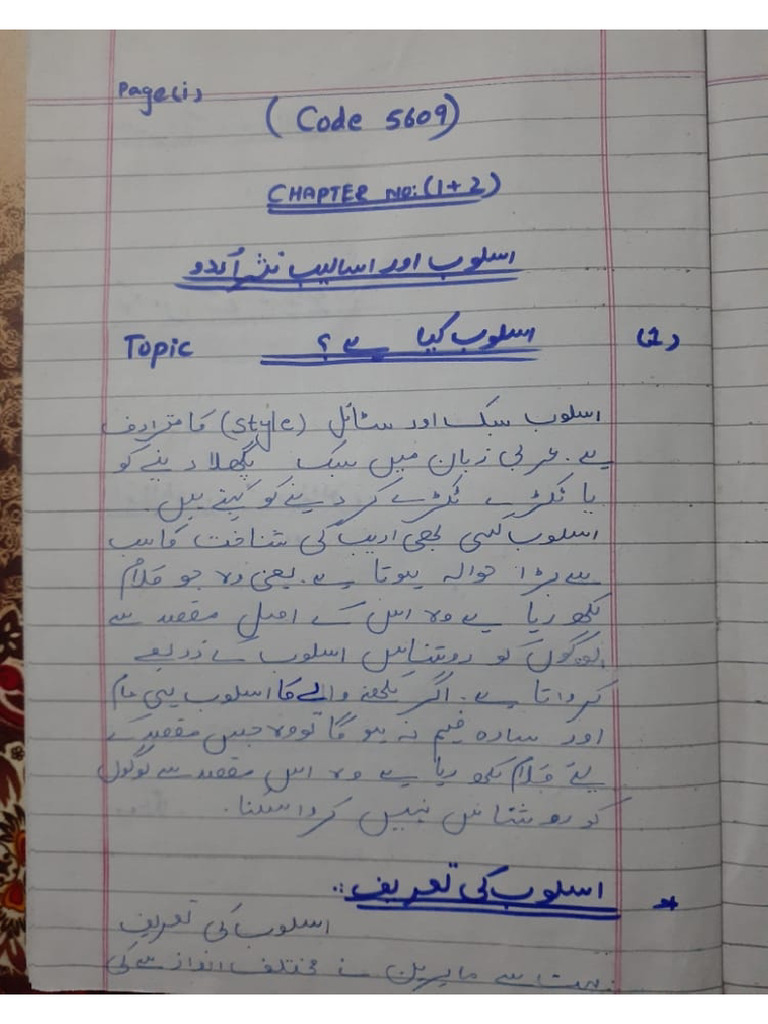 Page(i)
(Code 5609)
CHAPTER No:(1+2)
اسلوب اور اسالیب نثر اُردو
(1) اسلوب کیا ہے ؟ Topic
اسلوب سبک اور سٹائل (style) کا مترادف
ہے۔ عربی زبان میں سبک پگھلا دینے کو
یا ٹکڑے ٹکڑے کر دینے کو کہتے ہیں۔
اسلوب کسی بھی ادیب کی شناخت کا سب
سے بڑا حوالہ ہوتا ہے۔ یعنی وہ جو کلام
لکھ رہا ہے وہ اس کے اصل مقصد سے
لوگوں کو روشناس اسلوب کے ذریعے
کرواتا ہے۔ اگر لکھنے والے کا اسلوب ہی عام
اور سادہ فہم نہ ہو گا تو وہ جس مقصد کے
لیے کلام لکھ رہا ہے وہ اس مقصد سے لوگوں
کو روشناس نہیں کروا سکتا۔
* اسلوب کی تعریف :.
اسلوب کی تعریف
بہت سے ماہرین نے مختلف انداز سے کی